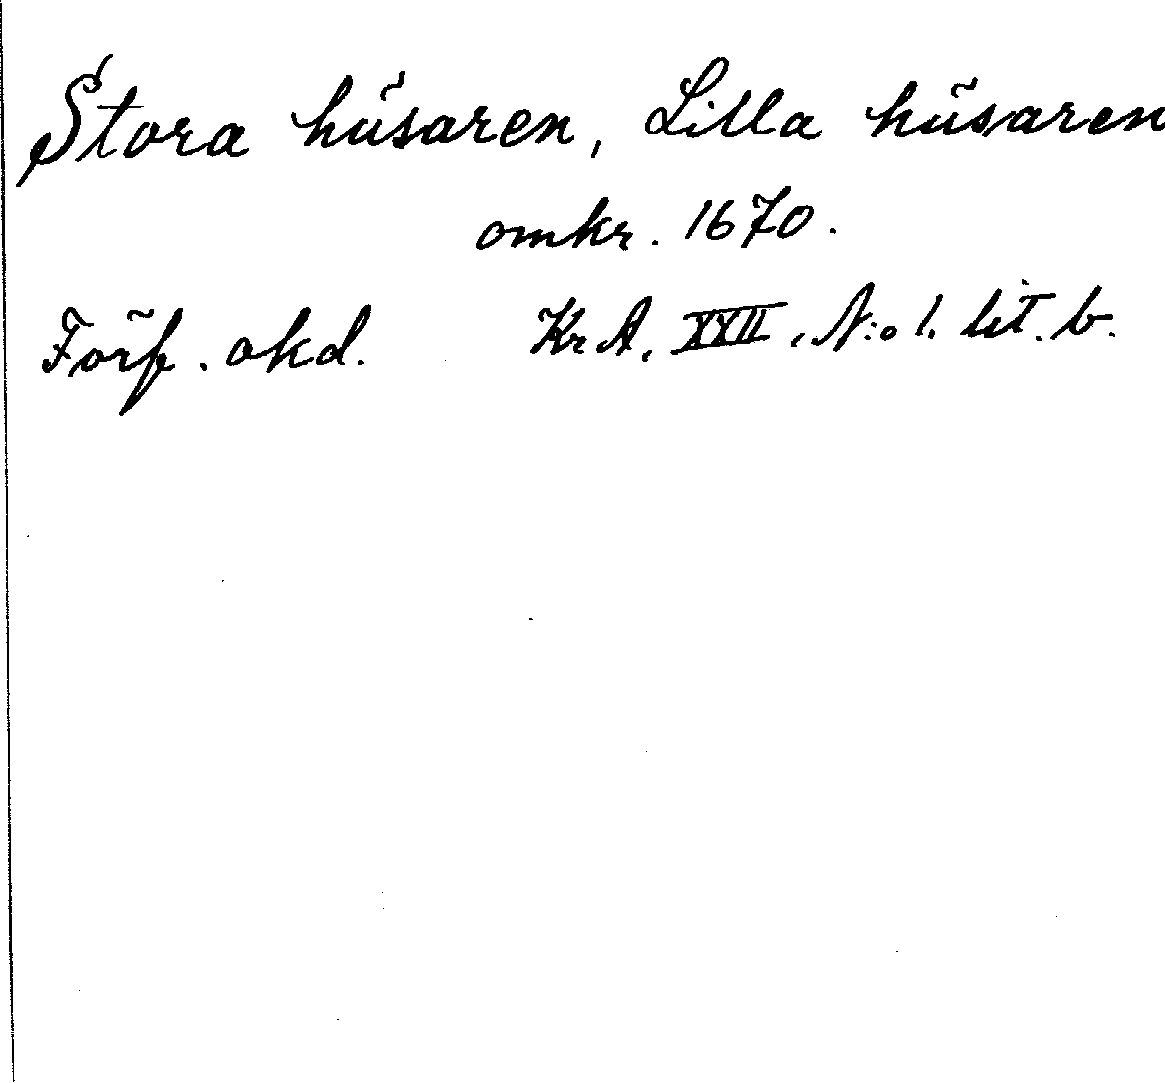 Stora husaren, Lilla husaren
omkr. 1670.
Förf. okd. Kr A, XXII, N:o 1. lit. b.